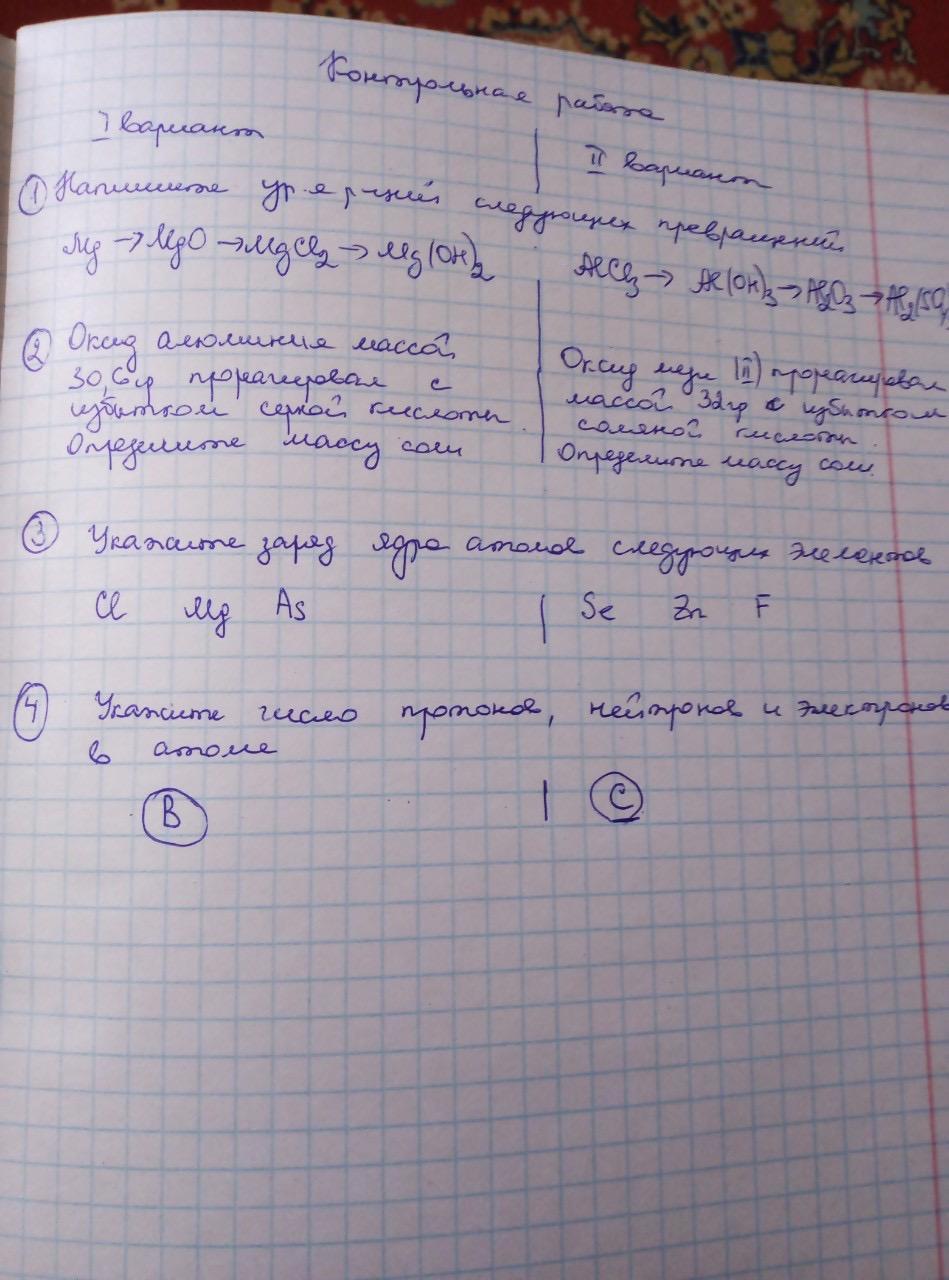 Контрольная работа
I вариант
II вариант
① Напишите ур-я р-ций следующих превращений
Mg → MgO → MgCl₂ → Mg(OH)₂
AlCl₃ → Al(OH)₃ → Al₂O₃ → Al₂(SO₄
② Оксид алюминия массой
30,6гр прореагировал с
избытком серной кислоты.
Определите массу соли
Оксид меди (II) прореагировал
массой 32гр с избытком
соляной кислоты.
Определите массу соли.
③ Укажите заряд ядра атомов следующих элементов
Cl Mg As
Se Zn F
④ Укажите число протонов, нейтронов и электронов
в атоме
B
C